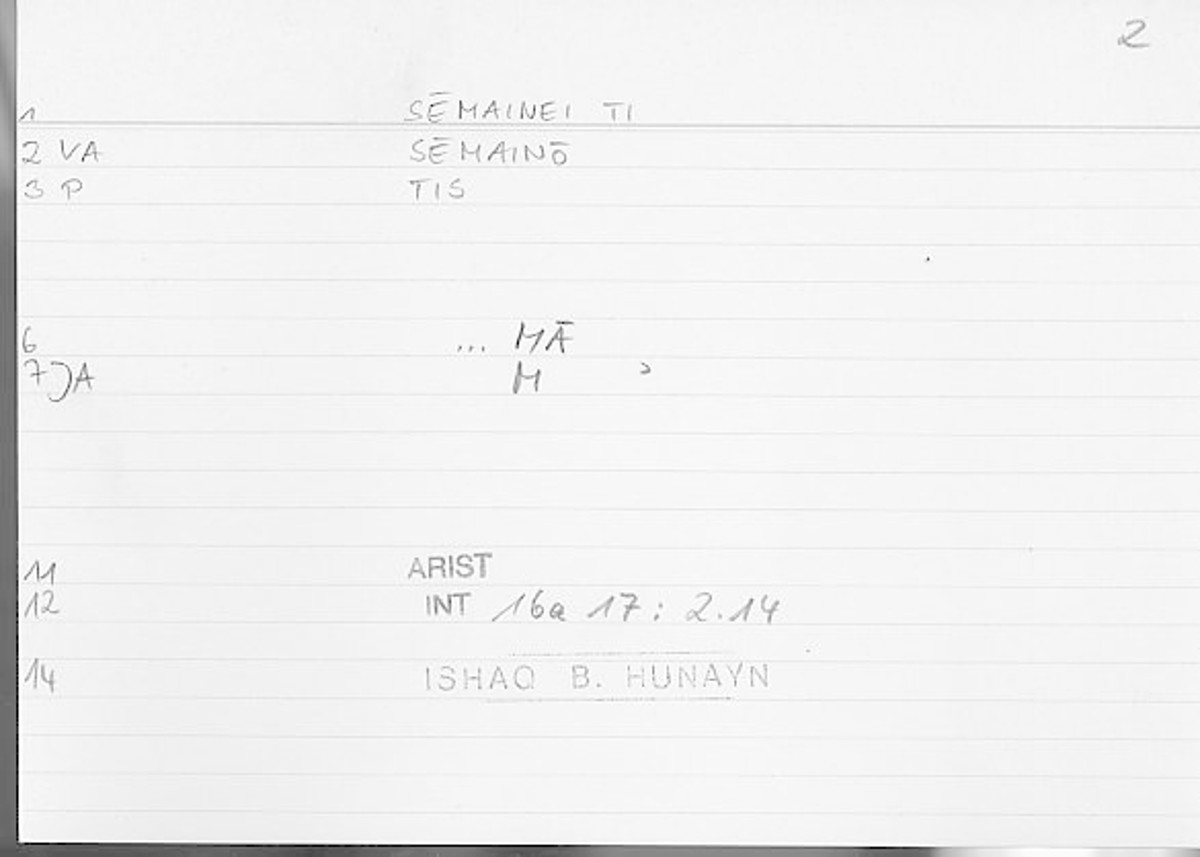 2
1 SĒMAINEI TI
2 VA SĒMAINŌ
3 P TIS
6 ... MĀ
7 JA M ɔ
11 ARIST
12 INT 16a 17: 2.14
14 ISHAQ B. HUNAYN